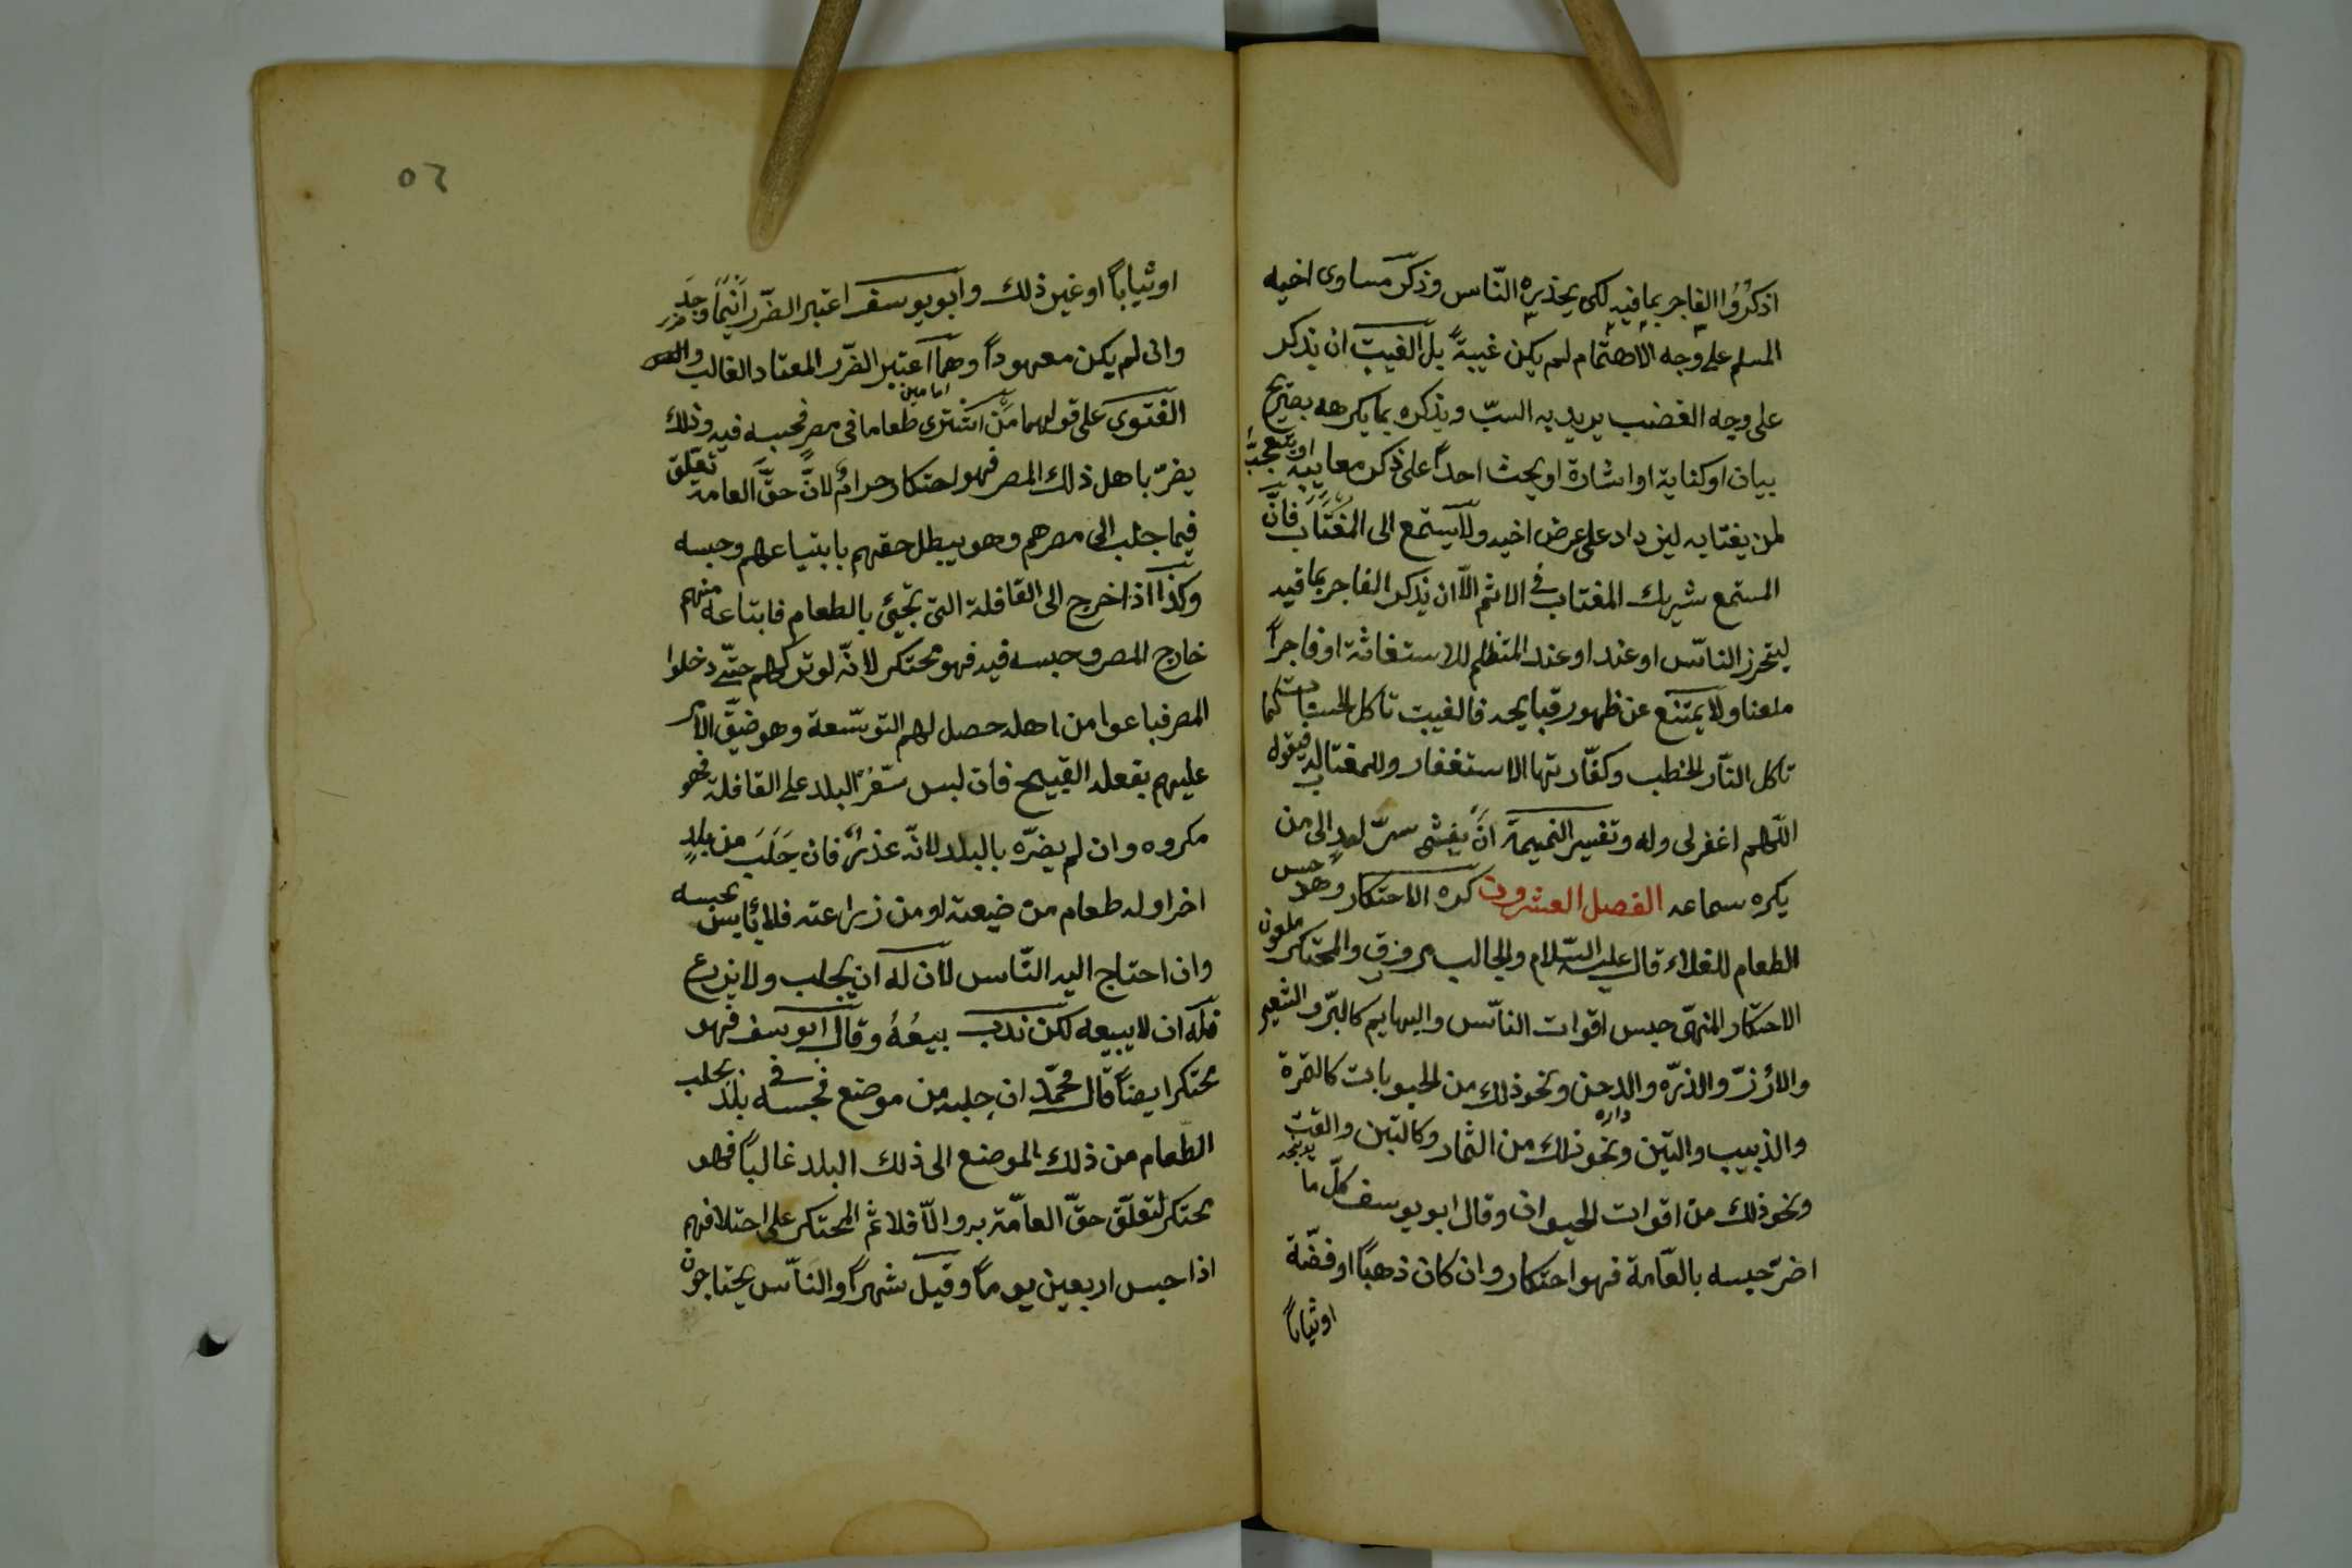 اذكُرُوا الفاجر بما فيه لكى يحذره النّاس وذكر مساوى اخيه
المسلم على وجه الاهتمام لم يكن غيبةً بل الغيبت ان يذكر
على وجه الغضب يريد به السبّ ويذكره بما يكرهه بصريح
بيان او كناية او اشارة او يحث احداً على ذكر معايبه او يتعجب
لمن يغتابه ليزداد على عرض اخيه ولا يستمع الى المُغتاب فانّ
المستمع شريك المغتاب فى الاثم الّا ان يذكر الفاجر بما فيه
ليتحرز النّاس او عند او عند المتظلم للاستغاثة او فاجراً
معلنا ولا يمتنع عن ظهور قبايحه فالغيبت تاكل الحسنات كما
تاكل النّار الحطب وكفّارتها الاستغفار وللمغتاب له فيقول
اللّهم اغفر لى وله وتفسير النميمة ان يفشى سرّ احد الى من
يكره سماعه الفصل العشرون كره الاحتكار وهو حبس
الطعام للغلاء قال عليه السّلام والجالب مرزوق والمحتكر ملعون
الاحتكار المنهى حبس اقوات النّاس والبهايم كالبرّ والشعير
والارزّ والذرّه والدخن ونحو ذلك من الحبوبات كالتمرة
داره
والزبيب والتين ونحو ذلك من الثمار وكالتبن والقت
يونجه
ونحو ذلك من اقوات الحيوان وقال ابو يوسف كلّ ما
اضرّ حبسه بالعّامة فهو احتكار وان كان ذهباً او فضّة
او ثياباً
٥٦
او ثياباً او غير ذلك وابو يوسف اعتبر الضّرر اَيْنَما وجد
ضرر
وان لم يكن معهوداً وهما اعتبر الضّرر المعتاد الغالب
امامين
الفتوى على قولهما مَن اشترى طعاما فى مصر فحبسه فيه وذلك
يضرّ باهل ذلك المصر فهو احتكار حرام لانّ حقّ العامة تعلّق
فيما جلب الى مصرهم وهو يبطل حقهم بابتياعهم وحبسه
وكذا اذا خرج الى القافلة التى تجئ بالطعام فابتاعه منهم
خارج المصر وحبسه فيه فهو محتكر لانّه لو تركهم حتّى دخلوا
المصر فباعوا من اهله حصل لهم التوسّعة وهو ضيّق الامر
عليهم بفعله القبيح فان لبس سّعرُ البلد على القافلة فهو
مكروه وان لم يضرّه بالبلد لانّه عذر فان جَلَبَ من بلدٍ
اخر او له طعام من ضيعته او من زراعته فلا بأس بحبسه
وان احتاج اليه النّاس لان له ان يجلب ولا يزرع
فله ان لا يبيعه لكن ندب بيعُهُ وقال ابو يوسف فهو
محتكر ايضاً قال محمّد ان جلبه من موضع فحبسه فى بلد يجلب
الطّعام من ذلك الموضع الى ذلك البلد غالباً فهو
محتكر لتعلّق حقّ العامّة به والّا فلا ثم المحتكر على اختلافهم
اذا حبس اربعين يوماً وقيل شهراً والنّاس يحتاجون